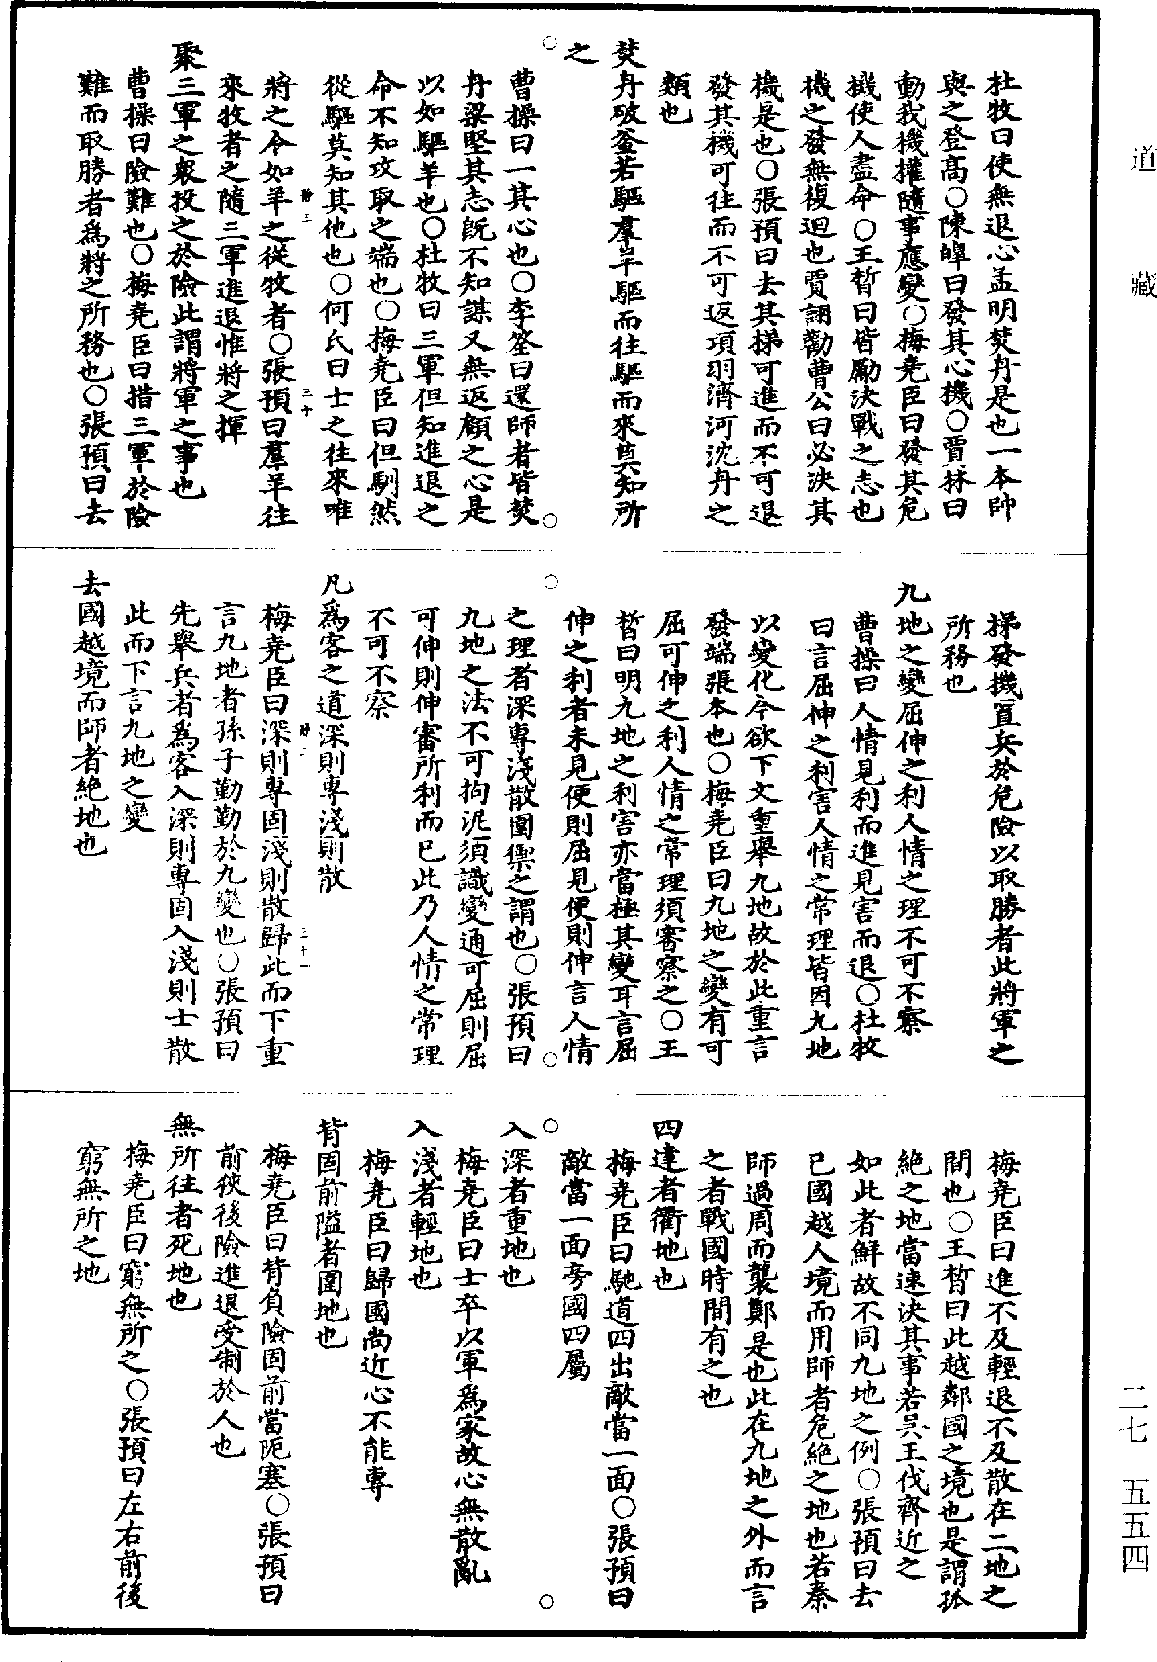 道藏
杜牧曰使無退心孟明焚舟是也一本帥
與之登高○陳皥曰發其心機○賈林曰
動我機權隨事應變○梅堯臣曰發其危
機使人盡命○王晳曰皆勵決戰之志也
機之發無復迴也賈詡勸曹公曰必決其
機是也○張預曰去其梯可進而不可退
發其機可往而不可返項羽濟河沈舟之
類也
焚舟破釜若驅羣羊驅而往驅而來莫知所
之
曹操曰一其心也○李筌曰還師者皆焚
舟梁堅其志旣不知謀又無返顧之心是
以如驅羊也○杜牧曰三軍但知進退之
命不知攻取之端也○梅堯臣曰但馴然
從驅莫知其他也○何氏曰士之往來唯
將之令如羊之從牧者○張預曰羣羊往
來牧者之隨三軍進退惟將之揮
聚三軍之衆投之於險此謂將軍之事也
曹操曰險難也○梅堯臣曰措三軍於險
難而取勝者為將之所務也○張預曰去
梯發機置兵於危險以取勝者此將軍之
所務也
九地之變屈伸之利人情之理不可不察
曹操曰人情見利而進見害而退○杜牧
曰言屈伸之利害人情之常理皆因九地
以變化今欲下文重舉九地故於此重言
發端張本也○梅堯臣曰九地之變有可
屈可伸之利人情之常理須審察之○王
晳曰明九地之利害亦當極其變耳言屈
伸之利者未見便則屈見便則伸言人情
之理者深專淺散圍禦之謂也○張預曰
九地之法不可拘泥須識變通可屈則屈
可伸則伸審所利而已此乃人情之常理
不可不察
凡為客之道深則專淺則散
梅堯臣曰深則專固淺則散歸此而下重
言九地者孫子勤勤於九變也○張預曰
先舉兵者為客入深則專固入淺則士散
此而下言九地之變
去國越境而師者絕地也
梅堯臣曰進不及輕退不及散在二地之
間也○王晳曰此越鄰國之境也是謂孤
絕之地當速決其事若吳王伐齊近之
如此者鮮故不同九地之例○張預曰去
已國越人境而用師者危絕之地也若秦
師過周而襲鄭是也此在九地之外而言
之者戰國時間有之也
四達者衢地也
梅堯臣曰馳道四出敵當一面○張預曰
敵當一面旁國四屬
入深者重地也
梅堯臣曰士卒以軍為家故心無散亂
入淺者輕地也
梅堯臣曰歸國尚近心不能專
背固前隘者圍地也
梅堯臣曰背負險固前當阨塞○張預曰
前狹後險進退受制於人也
無所往者死地也
梅堯臣曰窮無所之○張預曰左右前後
窮無所之地
二七 五五四